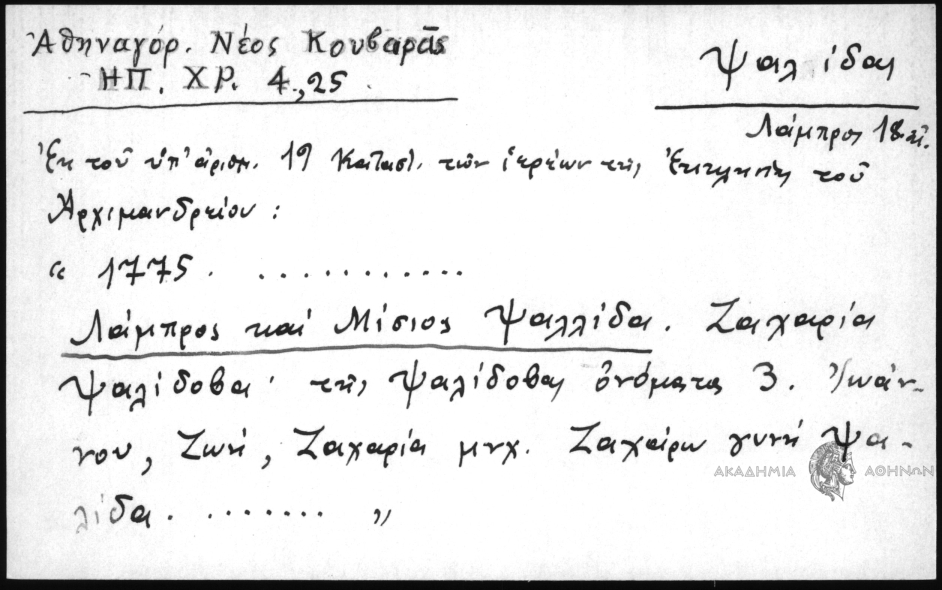 Ἀθηναγόρ. Νέος Κουβαρᾶς
ΗΠ. ΧΡ. 4,25.
Ψαλίδας
Λάμπρος 18 αἰ.
Ἐκ τοῦ ὑπ' ἀριθμ. 19 Καταστ. τῶν ἱερέων τῆς Ἐκκλησίας τοῦ
Ἀρχιμανδρείου :
" 1775 . ............
Λάμπρος καί Μίσιος Ψαλλίδα. Ζαχαρία
Ψαλίδοβα· τῆς Ψαλίδοβας ὀνόματα 3. Ἰωάν-
νου, Ζωή, Ζαχαρία μνχ. Ζαχαίρω γυνή Ψα-
λίδα. ........ "
ΑΚΑΔΗΜΙΑ ΑΘΗΝΩΝ